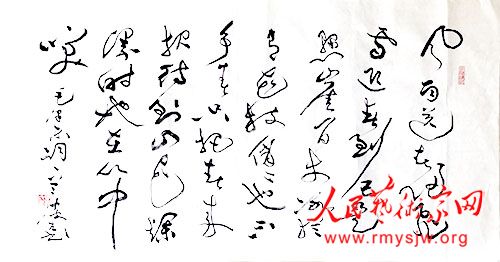 风雨送春归飞
雪迎春到已是
悬崖百丈冰犹
有花枝俏々也不
争春只把春来
报待到山花烂
漫时她在丛中
笑 毛泽东词
人民藝術家网
www.rmysjw.org